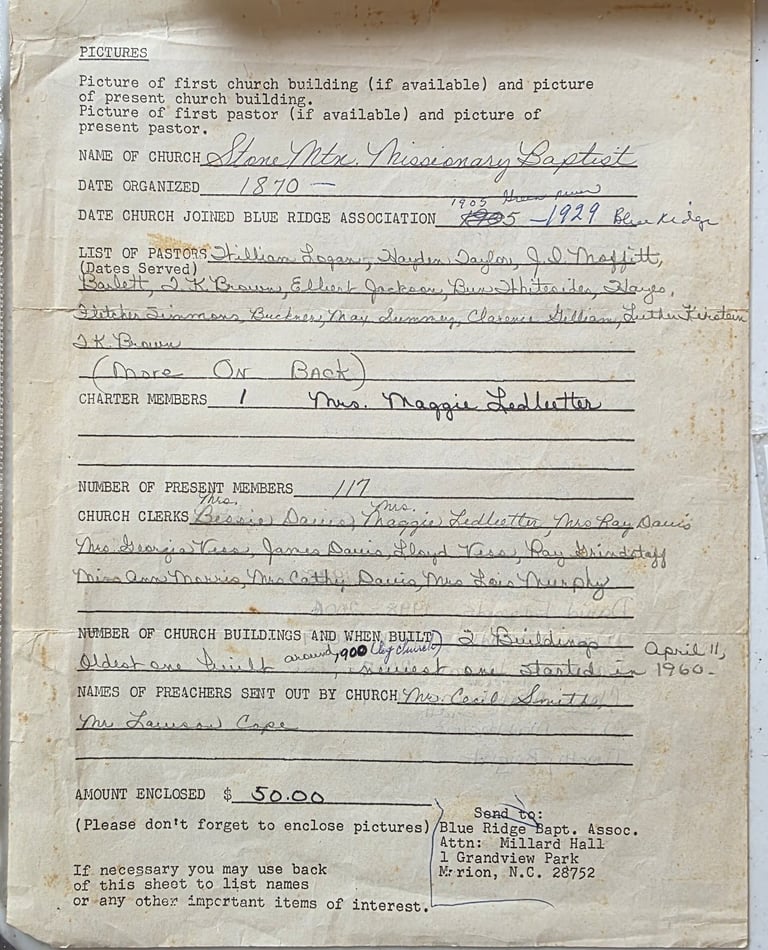 PICTURES
Picture of first church building (if available) and picture
of present church building.
Picture of first pastor (if available) and picture of
present pastor.
NAME OF CHURCH Stone Mtn. Missionary Baptist
DATE ORGANIZED 1870 —
1905 Green river
DATE CHURCH JOINED BLUE RIDGE ASSOCIATION 1905 – 1929 Blue Ridge
LIST OF PASTORS William Logan, Hayden Taylor, J.D. Moffitt,
(Dates Served)
Barlett, T.K. Brown, Elbert Jackson, Bun Whitesides, Hayes,
Fletcher Simmons Buckner, May Summey, Clarence Gilliam, Luther
T.K. Brown
(More On Back)
CHARTER MEMBERS 1 Mrs. Maggie Ledbetter
NUMBER OF PRESENT MEMBERS 117
Mrs. Mrs.
CHURCH CLERKS Bessie Davis, Maggie Ledbetter, Mrs Ray Davis
Mrs. Georgia Vess, James Davis, Lloyd Vess, Ray Grindstaff
Miss Ann Morris, Mrs Cathy Davis, Mrs Lois Murphy
NUMBER OF CHURCH BUILDINGS AND WHEN BUILT) 2 Buildings April 11,
Oldest one built around 1900 (log church) newest one started in 1960.
NAMES OF PREACHERS SENT OUT BY CHURCH Mr. Cecil Smith,
Mr Lawson Cope
AMOUNT ENCLOSED $ 50.00
(Please don't forget to enclose pictures)
Send to:
Blue Ridge Bapt. Assoc.
Attn: Millard Hall
1 Grandview Park
Marion, N.C. 28752
If necessary you may use back
of this sheet to list names
or any other important items of interest.